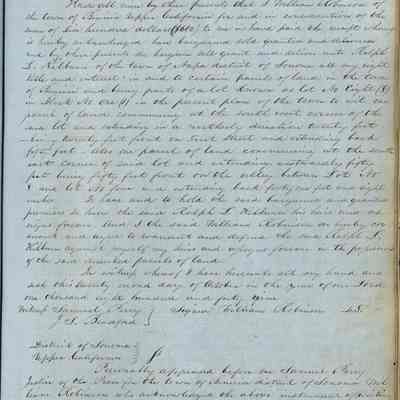 Know all men by these presents that I William Robinson of
the town of Benicia Upper California for and in consideration of the
sum of six hundred dollars ($600) to me in hand paid the receipt whereof
is hereby acknowledged have bargained sold granted and
and by these presents do bargain sell grant and deliver unto Ralph
L. Kilburn of the town of Napa district of Sonoma all my right
title and interest in and to certain parcels of land in the town
of Benicia and being parts of a lot known as lot No Eight (8)
in Block No One (1) in the present plan of the town to wit one
parcel of land commencing at the south west corner of the
said lot and extending in a northerly direction twenty feet
being twenty feet front on first street and extending back
feet. Also one parcel of land commencing at the south
east corner of said lot and extending westwardly fifty
feet being fifty feet front on the alley between Lot No
8 and lot No four and extending back forty one feet and eight
inches To have and to hold the said bargained and granted
premises to him the said Ralph L Kilburn his heirs and as
signs forever And I the said William Robinson do hereby cov
enant and agree to warrant and defend the said Ralph L
Kilburn against myself my heirs and assigns forever in the possession
of the said described parcels of land
In witness whereof I have hereunto set my hand and
this twenty second day of October in the year of our Lord
one thousand eight hundred and forty nine
Witness Samuel Perry } Signed William Robinson
J. S. Bradford
District of Sonoma
Upper California
Personally appeared before me Samuel Perry
Justice of the Peace for the town of Benicia district of Sonoma Wil
liam Robinson who acknowledged the above instrument